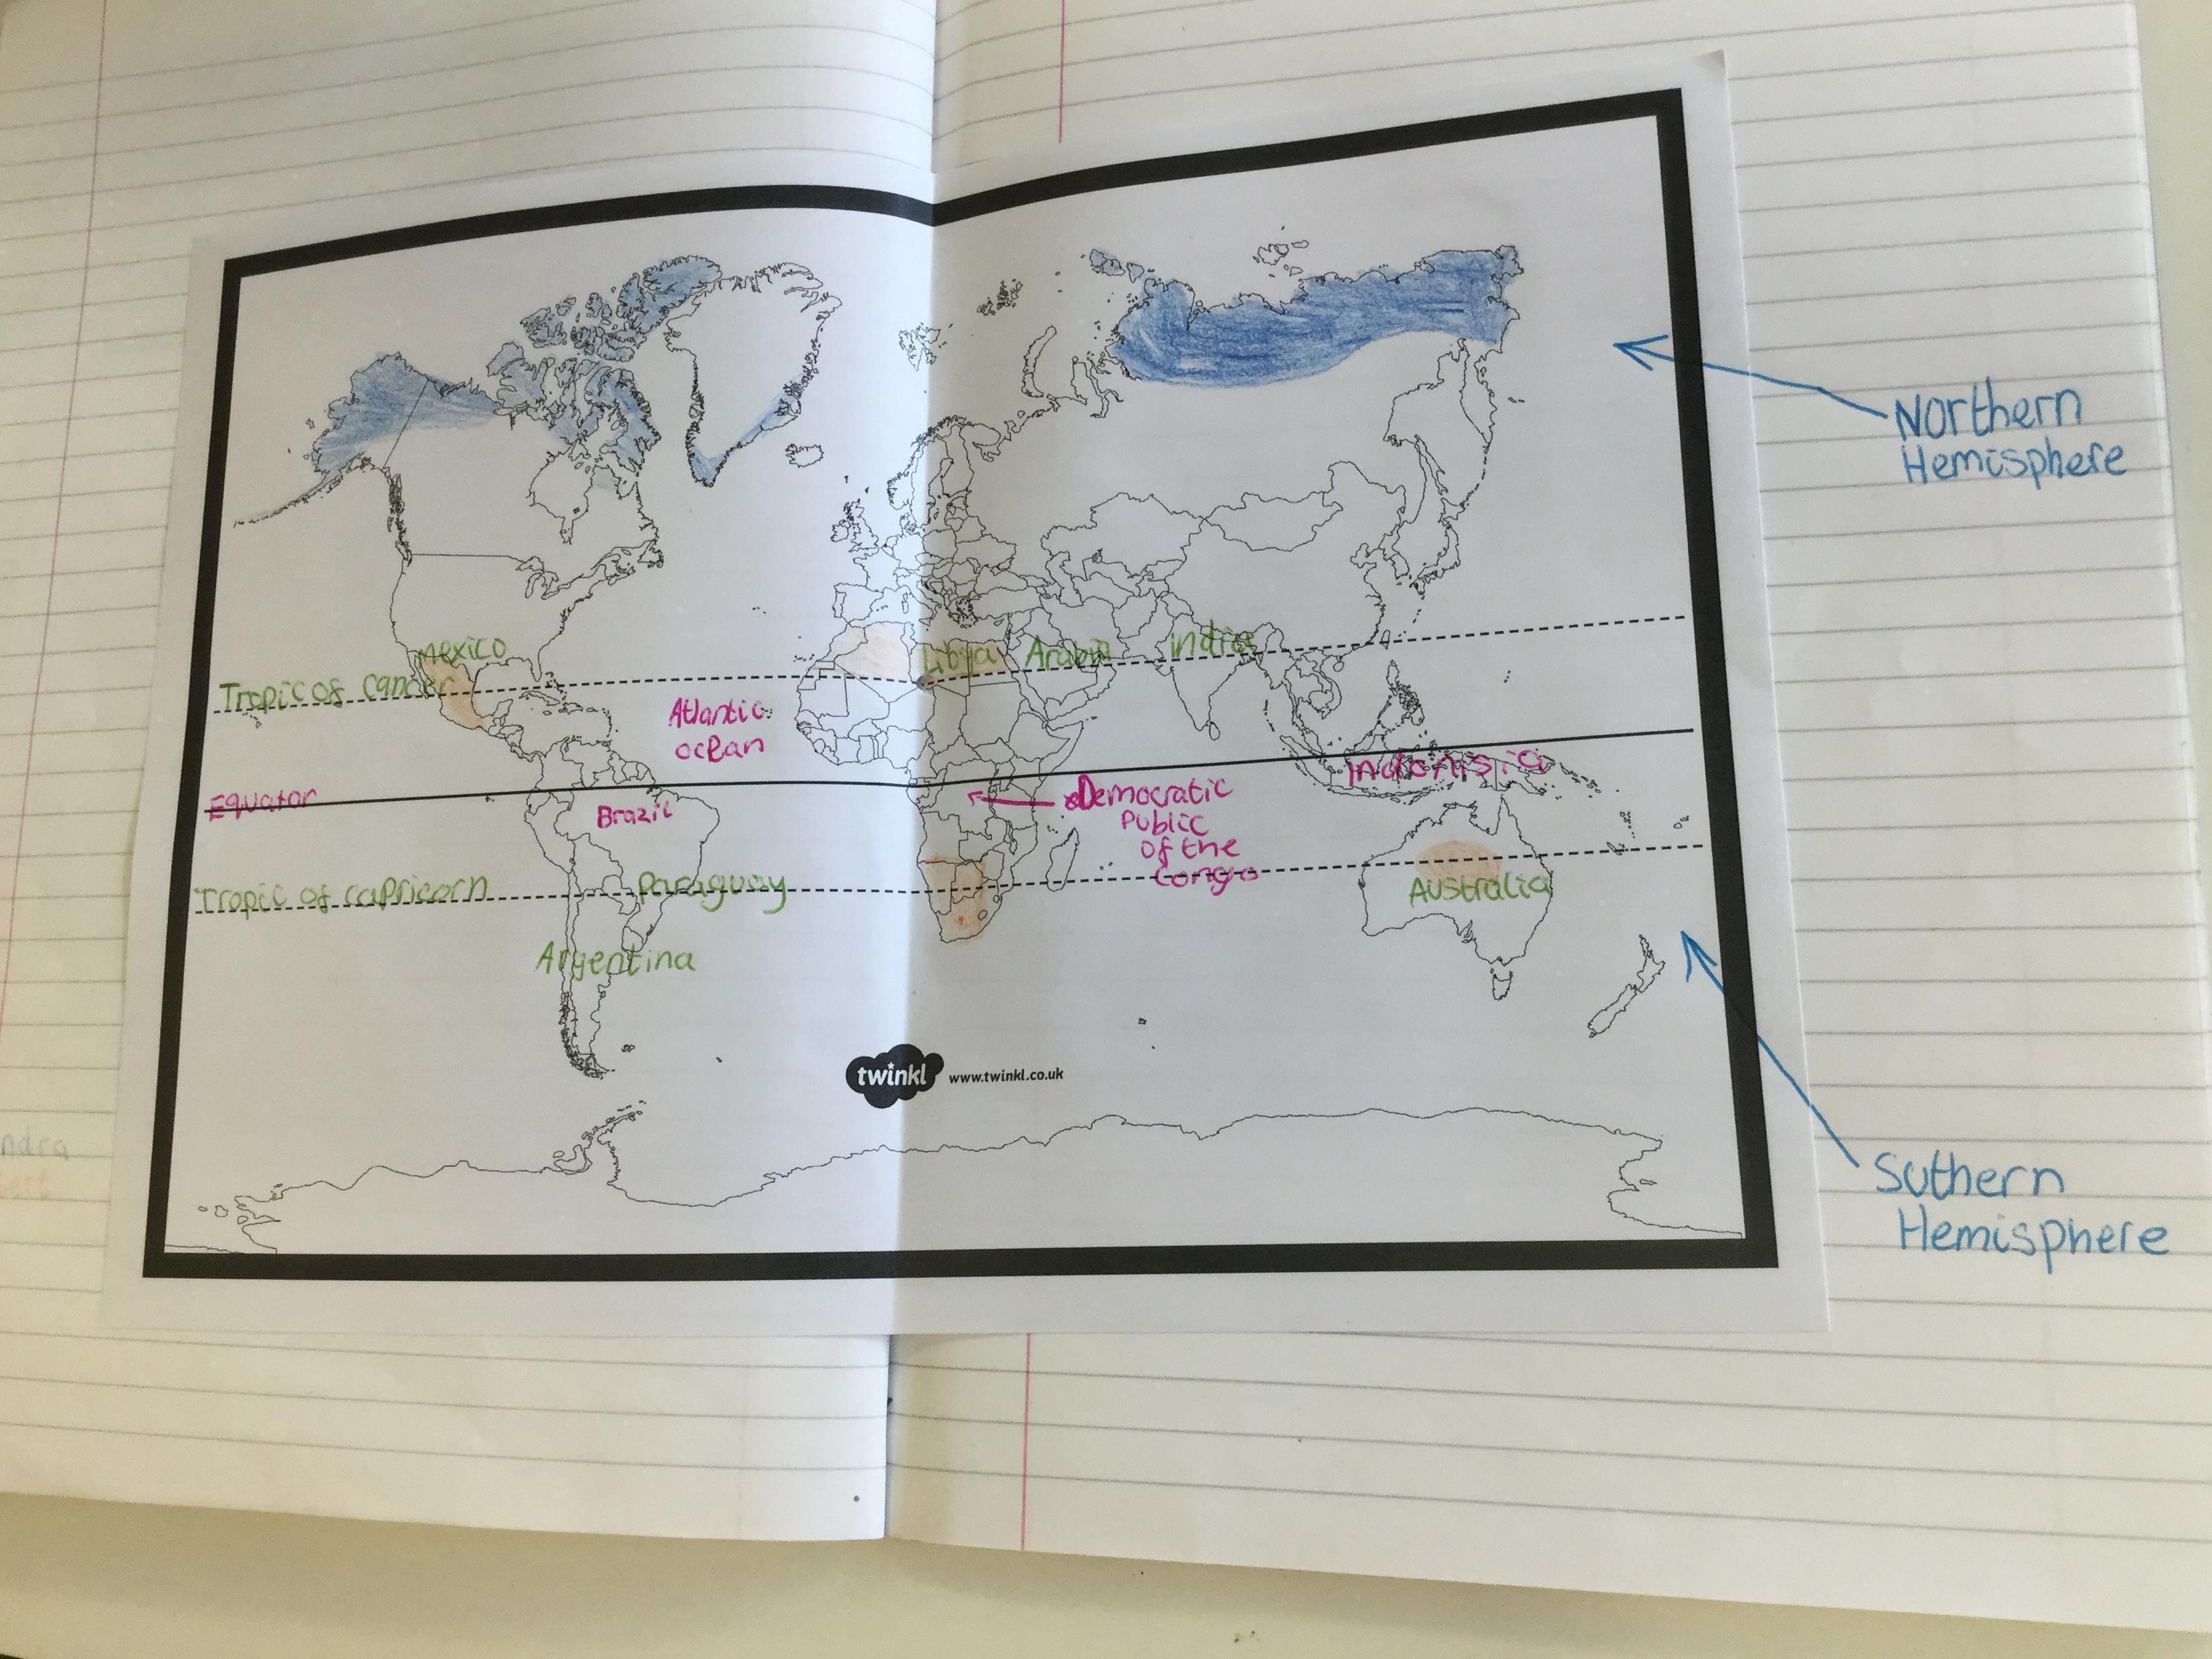 Northern
Hemisphere
mexico
Libya
Arabia
india
Tropic of cancer
Atlantic
ocean
Equator
Brazil
Indonisia
Democratic
Public
Of the
Congo
Tropic of capricorn
Paraguay
Australia
Argentina
twinkl www.twinkl.co.uk
Suthern
Hemisphere
ndra